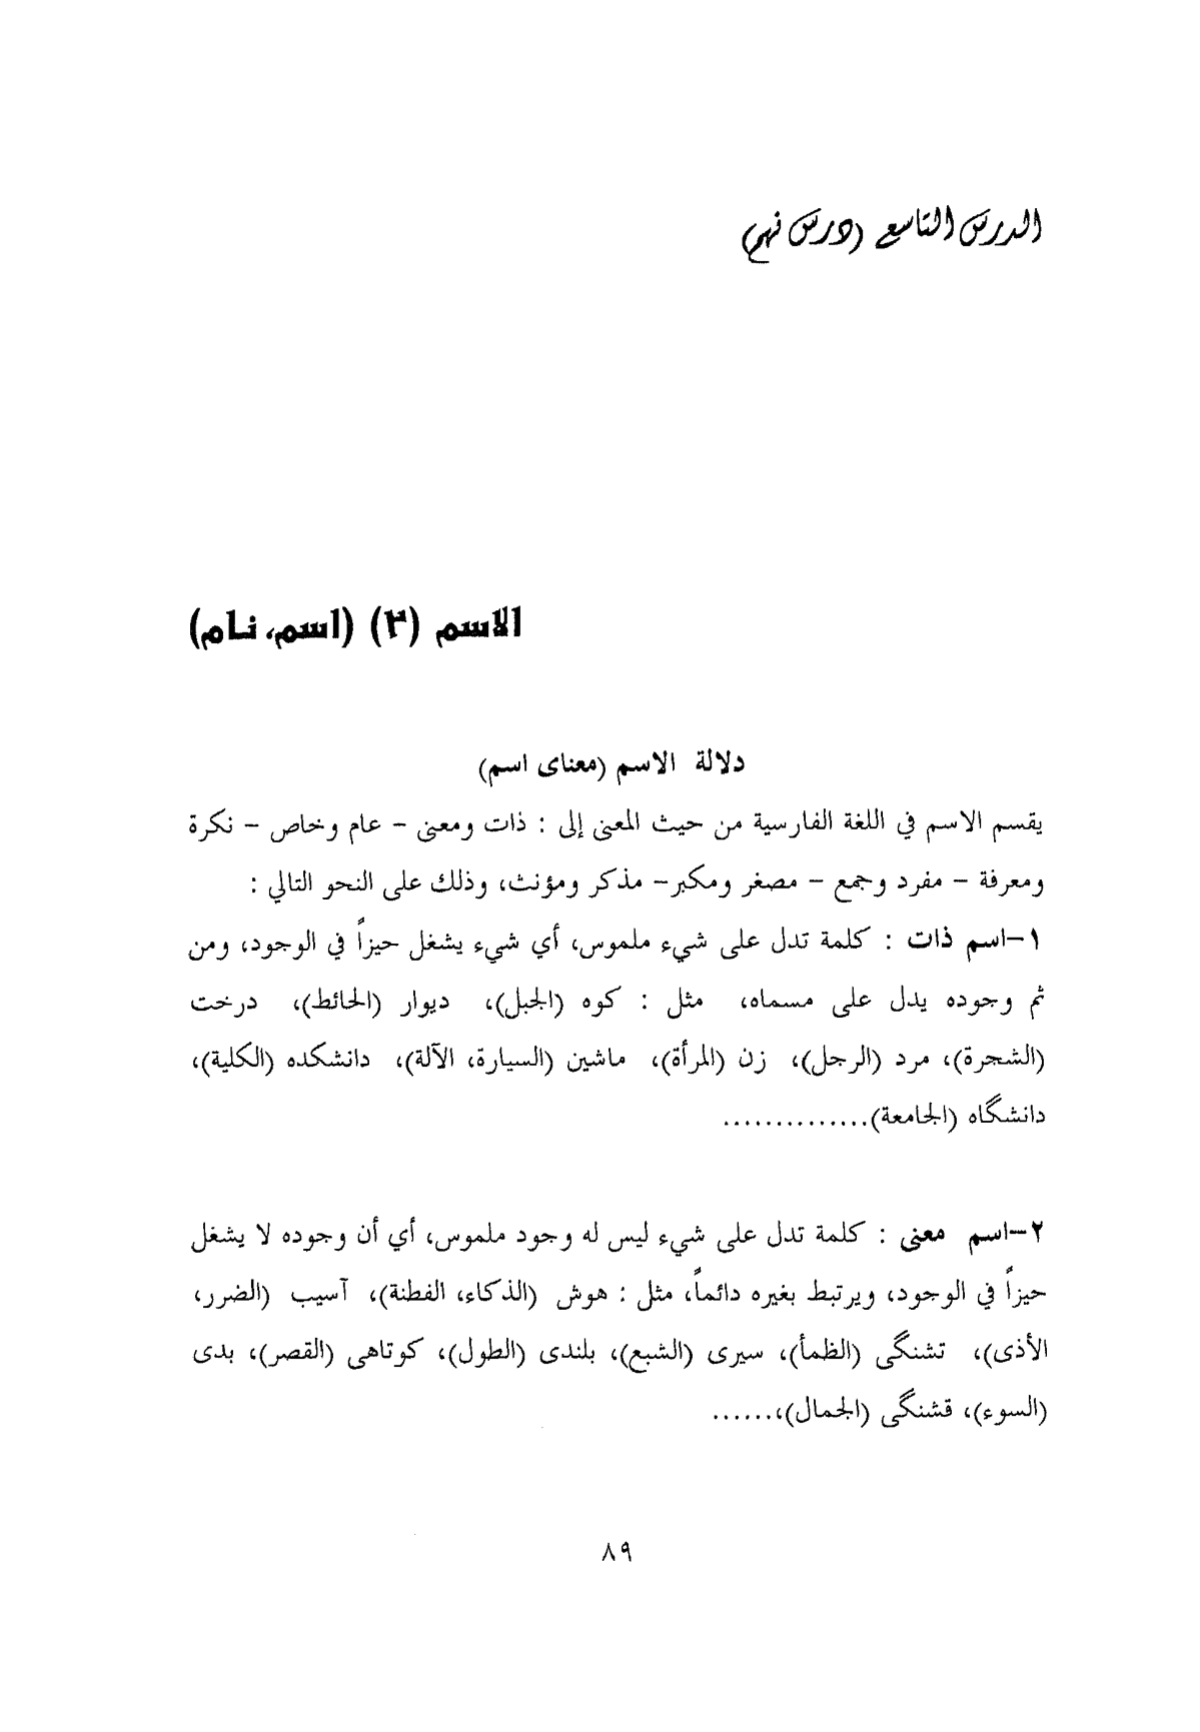 الدرس التاسع (درس نهم)
الاسم (٣) (اسم، نام)
دلالة الاسم (معنای اسم)
يقسم الاسم في اللغة الفارسية من حيث المعنى إلى : ذات ومعنى – عام وخاص – نكرة
ومعرفة – مفرد وجمع – مصغر ومكبر– مذكر ومؤنث، وذلك على النحو التالي :
١–اسم ذات : كلمة تدل على شيء ملموس، أي شيء يشغل حيزاً في الوجود، ومن
ثم وجوده يدل على مسماه، مثل : كوه (الجبل)، ديوار (الحائط)، درخت
(الشجرة)، مرد (الرجل)، زن (المرأة)، ماشين (السيارة، الآلة)، دانشكده (الكلية)،
دانشگاه (الجامعة)..............
٢–اسم معنى : كلمة تدل على شيء ليس له وجود ملموس، أي أن وجوده لا يشغل
حيزاً في الوجود، ويرتبط بغيره دائماً، مثل : هوش (الذكاء، الفطنة)، آسيب (الضرر،
الأذى)، تشنگى (الظمأ)، سيرى (الشبع)، بلندى (الطول)، كوتاهى (القصر)، بدى
(السوء)، قشنگى (الجمال)،......
٨٩